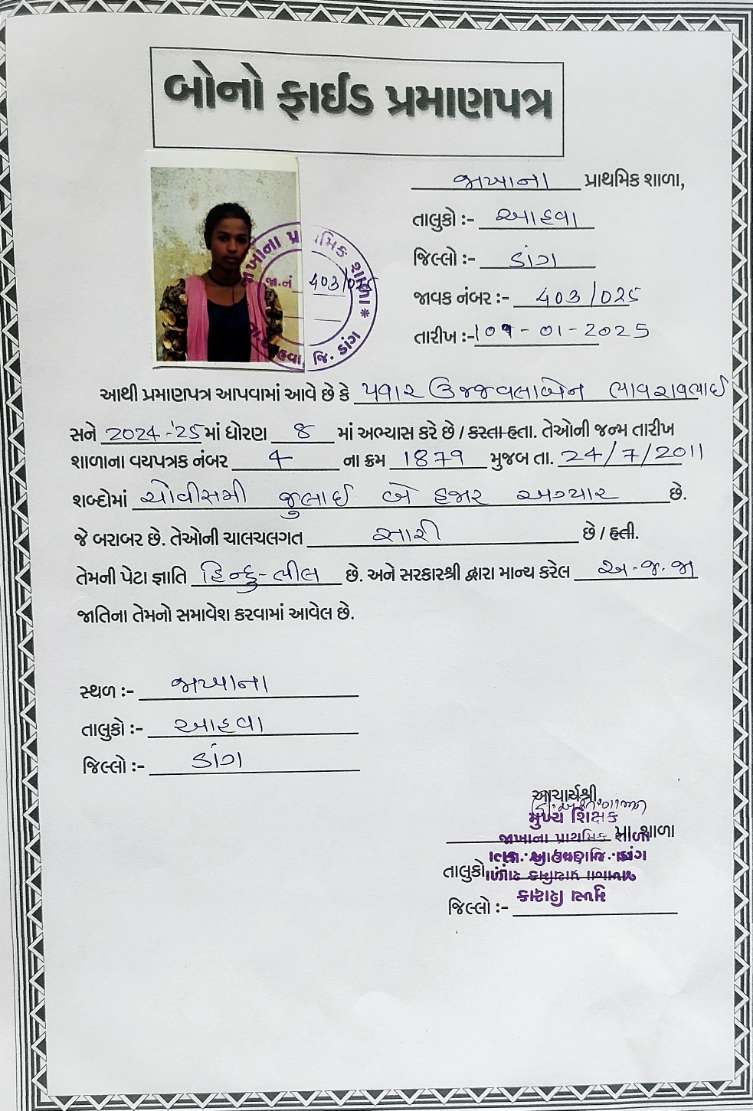 બોનો ફાઈડ પ્રમાણપત્ર
જાખાના પ્રાથમિક શાળા,
તાલુકો :- આહવા
જિલ્લો :- ડાંગ
જાવક નંબર :- 403/025
તારીખ :- 09-01-2025
જાખાના પ્રાથમિક શાળા *
જા.નં 403/025
તા. આહવા, જિ. ડાંગ
આથી પ્રમાણપત્ર આપવામાં આવે છે કે પવાર ઉજજવલાબેન ભાવરાવભાઈ
સને 2024-'25 માં ધોરણ 8 માં અભ્યાસ કરે છે / કરતા હતા. તેઓની જન્મ તારીખ
શાળાના વયપત્રક નંબર 4 ના ક્રમ 1879 મુજબ તા. 24/7/2011
શબ્દોમાં ચોવીસમી જુલાઈ બે હજાર અગ્યાર છે.
જે બરાબર છે. તેઓની ચાલચલગત સારી છે / હતી.
તેમની પેટા જ્ઞાતિ હિન્દુ-ભીલ છે. અને સરકારશ્રી દ્વારા માન્ય કરેલ અ.જ.જા
જાતિના તેમનો સમાવેશ કરવામાં આવેલ છે.
સ્થળ :- જાખાના
તાલુકો :- આહવા
જિલ્લો :- ડાંગ
આચાર્યશ્રી,
મુખ્ય શિક્ષક
જાખાના પ્રાથમિક શાળા
તાલુકો
જિલ્લો :-